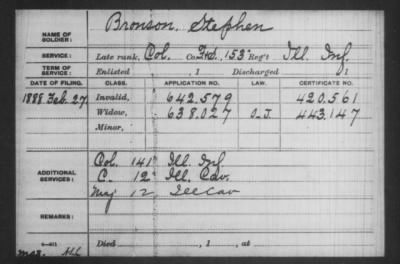 NAME OF SOLDIER: Bronson, Stephen
SERVICE: Late rank, Col. Co. F&S, 153" Reg't Ill. Inf.
TERM OF SERVICE: Enlisted , 1 Discharged , 1
DATE OF FILING. CLASS. APPLICATION NO. LAW. CERTIFICATE NO.
1888 Feb. 27 Invalid, 642.579 420.561
Widow, 638.027 O.J. 443.147
Minor,
ADDITIONAL SERVICES: Col. 141" Ill. Inf
C. 12" Ill. Cav.
Maj 12 Ill Cav
REMARKS:
Died , 1 , at